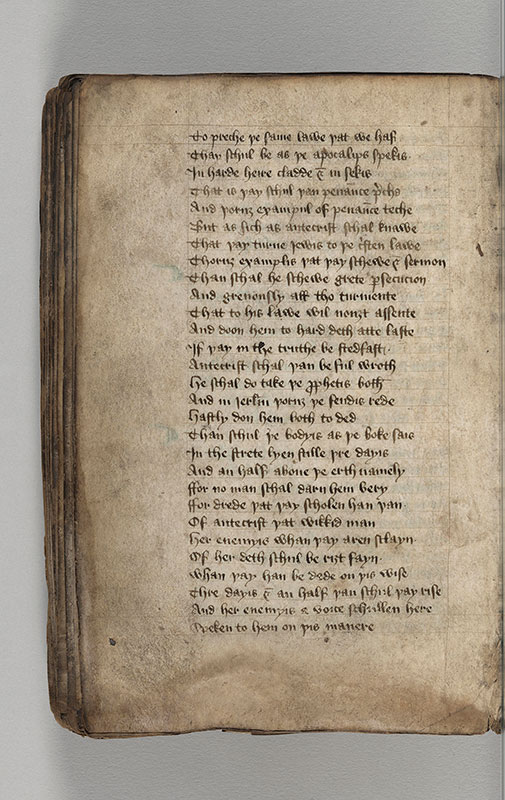 To preche þe same lawe þat we haf
Thay schul be as þe apocalips spekis
In harde heire cladde & in sekis
That is þay schul þan penaūce p̄che
And þoruȝ exampul of penaūce teche
But as sich as antecrist schal knawe
That þay turne iewis to þe c̄sten lawe
Thoruȝ examplis þat þay schewe & sermon
Than schal he schewe grete ꝑsecucion
And greuously all tho turmente
That to his lawe wil nouȝt assente
And doon hem to hard deth atte laste
If þay in the truthe be stedfast
Antecrist schal þan be ful wroth
He schal do take þe ꝓphetis both
And in ierlm̄ þoruȝ þe fendis rede
Hastly don hem both to ded
Than schul þe bodyis as þe boke sais
In the strete lyen stille þre dayis
And an half aboue þe erth namely
ffor no man schal darn hem bery
ffor drede þat þay scholen han þan
Of antecrist þat wikkid man
Her enemyis whan þay aren sclayn
Of her deth schul be riȝt fayn
Whan þay han be dede on þis wise
Thre dayis & an half þan schul þay rise
And her enemyis a voice schullen here
Speken to hem on þis manere